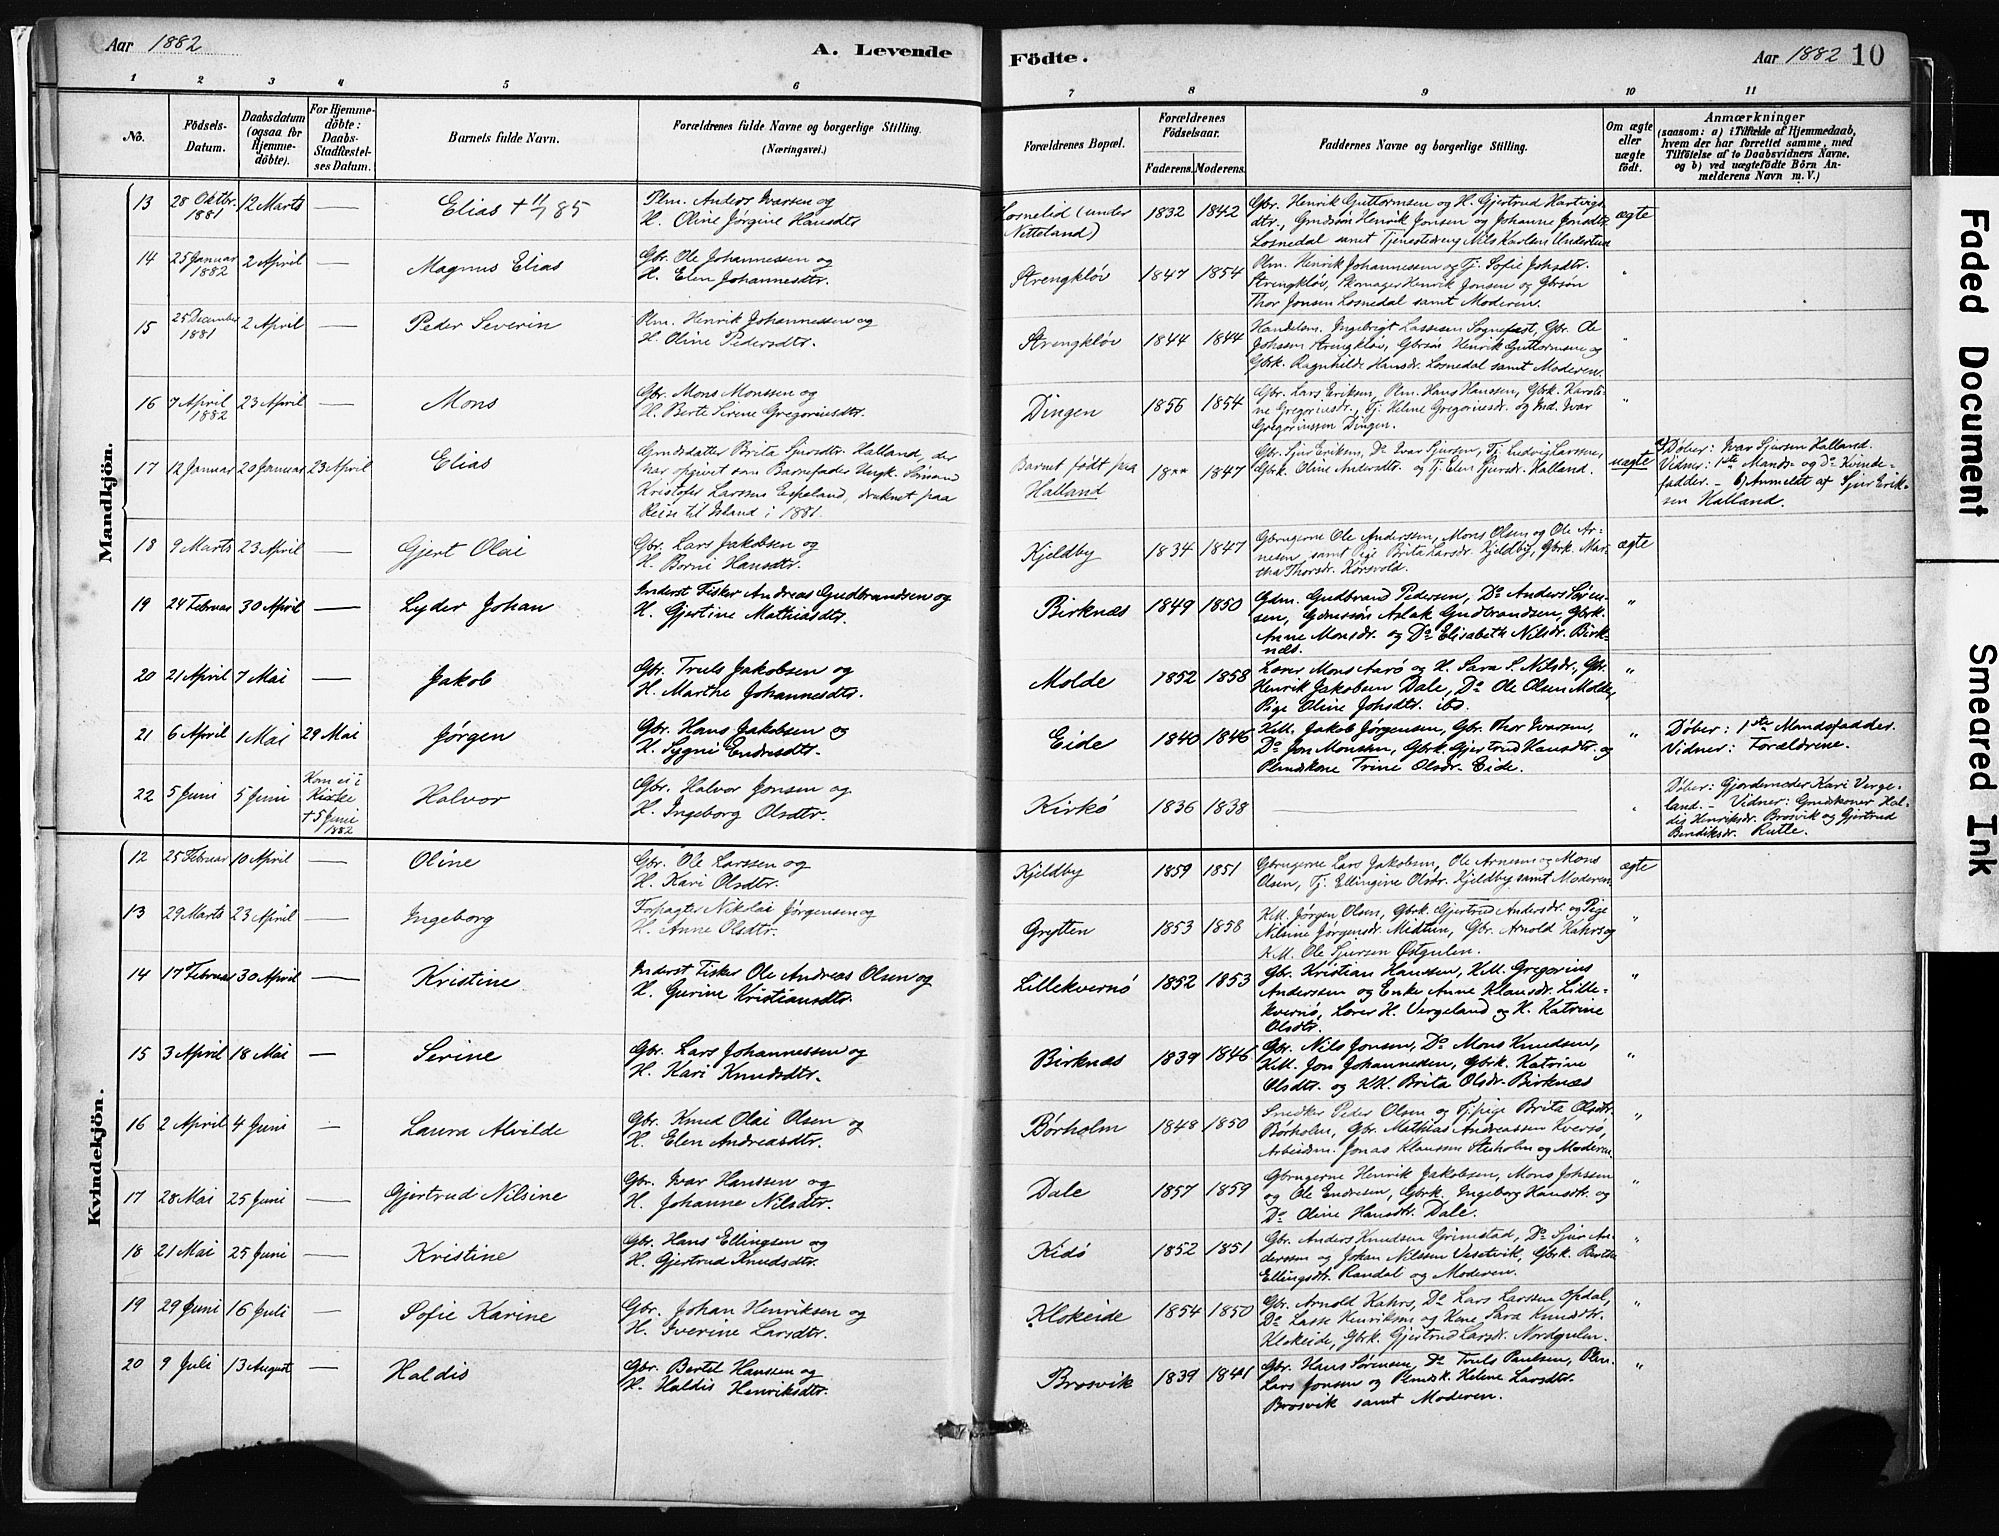 Aar 1882
A. Levende
Födte.
Aar 1882 10
1 2 3 4 5 6 7 8 9 10 11
No.
Födsels-
Datum.
Daabsdatum
(ogsaa for
Hjemme-
döbte).
For Hjemme-
döbte:
Daabs-
Stadfæstel-
ses Datum.
Barnets fulde Navn.
Forældrenes fulde Navne og borgerlige Stilling.
(Næringsvei.)
Forældrenes Bopæl.
Forældrenes
Födselsaar.
Faderens. Moderens.
Faddernes Navne og borgerlige Stilling.
Om ægte
eller
uægte
födt.
Anmærkninger
(saasom: a) i Tilfælde af Hjemmedaab,
hvem der har forrettet samme, med
Tilföielse af to Daabsvidners Navne,
og b) ved uægtefödte Börn An-
melderens Navn m. V.)
Mandkjön.
13 28 Oktbr. 1881 12 Marts — Elias + 11/7 85
Plm. Anders Ivarsen og
H. Oline Jørgine Hansdtr.
Losnelid (under
Netteland)
1832 1842
Gbr. Henrik Guttormsen og H. Gjertrud Hartvigs
dtr., Gmdssøn Henrik Jonsen og Johanne Jonsdtr.
Losnedal samt Tjenestedreng Nils Karlsen Understad
ægte
14 25 Januar 1882 2 April — Magnus Elias
Gbr. Ole Johannessen og
H. Elen Johannesdtr.
Strengkløv 1847 1854
Plm. Henrik Johannessen og Tj. Sofie Johsdtr.
Strengkløv, Skomager Henrik Jonsen og Gbrsøn
Thor Jonsen Losnedal samt Moderen.
"
15 25 December 1881 2 April — Peder Severin
Plm. Henrik Johannessen og
H. Oline Pedersdtr.
Strengkløv 1844 1844
Handelsm. Ingebrigt Lassesen Sognefast, Gbr. Ole
Johssen Strengkløv, Gbrsøn Henrik Guttormsen og
Gbrk. Ragnhilde Hansdr. Losnedal samt Moderen.
"
16 7 April 1882 23 April — Mons
Gbr. Mons Monssen og
H. Berte Serene Gregoriusdtr.
Dingen 1856 1854
Gbr. Lars Eriksen, Plm. Hans Hanssen, Gbrk. Karoli-
ne Gregoriusdr., Tj. Helene Gregoriusdr. og Ind. Ivar
Gregoriussen Dingen.
"
17 12 Januar 20 Januar 23 April Elias
Gmdsdatter Brita Sjursdtr. Halland, der
har opgivet som Barnefader Ungk. Sømand
Kristofer Larssen Espeland, druknet paa
Reise til Island i 1881.
Barnet født paa
Halland
18** 1847
Gbr. Sjur Eriksen, Do Ivar Sjursen, Tj. Ludvig Larssen,
Gbrk. Oline Andersdtr. og Tj. Elen Sjursdr. Halland.
uægte
a) Døber: Ivar Sjursen Halland.
Vidner: 1ste Mands- og Do Kvinde-
fadder. – b) Anmeldt af Sjur Erik-
sen Halland.
18 9 Marts 23 April — Gjert Olai
Gbr. Lars Jakobsen og
H. Borni Hansdtr.
Kjeldby 1834 1847
Gbrugerne Ole Anderssen, Mons Olsen og Ole Ar-
nesen, samt Pige Brita Larsdr. Kjeldby, Gbrk. Mar-
tha Thorsdr. Korsvold.
ægte
19 24 Februar 30 April — Lyder Johan
Inderst Fisker Andreas Gudbrandsen og
H. Gjertine Mathiasdtr.
Birknæs 1849 1850
Gdm. Gudbrand Pedersen, Do Anders Søren-
sen, Gdmssøn Aslak Gudbrandsen, Gbrk.
Anne Monsdr. og Do Elisabeth Nilsdr. Birk-
næs.
"
20 21 April 7 Mai — Jakob
Gbr. Truls Jakobsen og
H. Marthe Johannesdtr.
Molde 1852 1858
Lærer Mons Aarø og H. Sara S. Nilsdr., Gbr.
Henrik Jakobsen Dale, Do Ole Olsen Molde,
Pige Oline Johsdtr. ibd.
"
21 6 April 1 Mai 29 Mai Jørgen
Gbr. Hans Jakobsen og
H. Sygni Endresdtr.
Eide 1840 1846
KM. Jakob Jørgensen, Gbr. Thor Ivarsen,
Do Jon Monsen, Gbrk. Gjertrud Hansdtr. og
Plmdskone Trine Olsdr. Eide.
"
Døber: 1ste Mandsfadder.
Vidner: Forældrene.
22 5 Juni 5 Juni Kom ei i Kirke + 5 Juni 1882 Halvor
Gbr. Halvor Jonsen og
H. Ingeborg Olsdtr.
Kirkø 1836 1838 —
"
Døber: Gjordemoder Kari Verge-
land. – Vidner: Gmdskoner Hal-
dis Henriksdr. Brosvik og Gjertrud
Bendiksdr. Rutle.
Kvindekjön.
12 25 Februar 10 April — Oline
Gbr. Ole Larssen og
H. Kari Olsdtr.
Kjeldby 1859 1851
Gbrugerne Lars Jakobsen, Ole Arnesen og Mons
Olsen, Tj. Ellingine Olsdr. Kjeldby samt Moderen.
ægte
13 29 Marts 23 April — Ingeborg
Forpagter Nikolai Jørgensen og
H. Anne Olsdtr.
Grytten 1853 1858
KM. Jørgen Olsen, Gbrk. Gjertrud Andersdr. og Pige
Nilsine Jørgensdr. Midtun, Gbr. Arnold Kahrs og
KM. Ole Sjursen Østgulen.
"
14 17 Februar 30 April — Kristine
Inderst Fisker Ole Andreas Olsen og
H. Gurine Kristiansdtr.
Lillekvernø 1852 1853
Gbr. Kristian Hanssen, KM. Gregorius
Anderssen og Enke Anne Klausdr. Lille-
kvernø, Lærer H. Vergeland og H. Katrine
Olsdtr.
"
15 3 April 18 Mai — Serine
Gbr. Lars Johannessen og
H. Kari Knudsdtr.
Birknæs 1839 1846
Gbr. Nils Jonsen, Do Mons Knudsen,
KM. Jon Johannesen, Gbrk. Katrine
Olsdtr. og KK. Brita Olsdr. Birknæs
"
16 2 April 4 Juni — Laura Alvilde
Gbr. Knud Olai Olsen og
H. Elen Andreasdtr.
Børholm 1848 1850
Snedker Peder Olsen og Tjpige Brita Olsdtr.
Børholm, Gbr. Mathias Andreassen Kversø,
Arbeidsm. Jonas Klaussen Steiholm og Moderen.
"
17 28 Mai 25 Juni — Gjertrud Nilsine
Gbr. Ivar Hanssen og
H. Johanne Nilsdtr.
Dale 1857 1859
Gbrugerne Henrik Jakobsen, Mons Johssen
og Ole Endresen, Gbrk. Ingeborg Hansdtr. og
Do Oline Hansdtr. Dale.
"
18 21 Mai 25 Juni — Kristine
Gbr. Hans Ellingsen og
H. Gjertrud Knudsdtr.
Kidø 1852 1851
Gbr. Anders Knudsen Grimstad, Do Sjur An-
derssen og Johan Nilssen Vesetvik, Gbrk. Berthe
Ellingsdtr. Randal og Moderen.
"
19 29 Juni 16 Juli — Sofie Karine
Gbr. Johan Henriksen og
H. Iverine Larsdtr.
Klskeide 1854 1850
Gbr. Arnold Kahrs, Do Lars Larssen Opdal,
Do Lasse Henriksen og Kone Sara Knudsdtr.
Klskeide, Gbrk. Gjertrud Larsdr. Nordgulen.
"
20 9 Juli 13 August — Haldis
Gbr. Bertel Hanssen og
H. Haldis Henriksdtr.
Brosvik 1839 1841
Gbr. Hans Sørensen, Do Truls Paulsen, Plm.
Lars Jonsen og Plmdsk. Helene Larsdtr.
Brosvik samt Moderen.
"
Faded Document
Smeared Ink